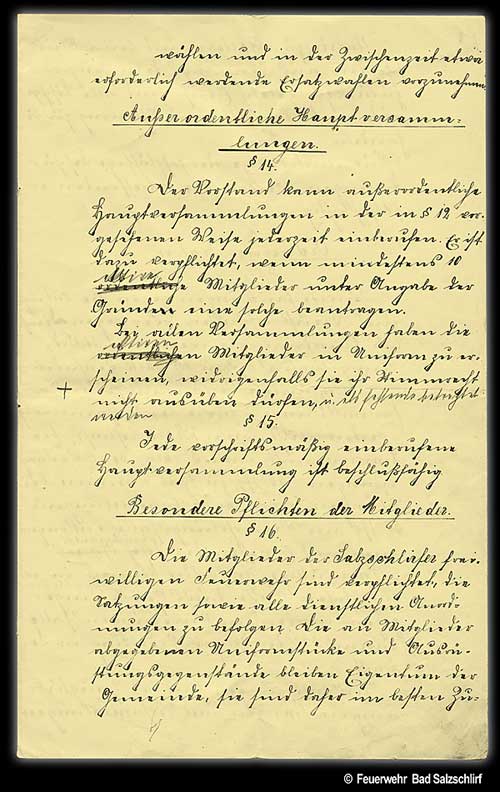 wählen und in der Zwischenzeit etwa
erforderlich werdende Ersatzwahlen vorzunehmen
Außerordentliche Hauptversamm=
lungen.
§ 14.
Der Vorstand kann außerordentliche
Hauptversammlungen in der in § 12 vor-
gesehenen Weise jederzeit einberufen. Er ist
dazu verpflichtet, wenn mindestens 10
aktive
ordentliche Mitglieder unter Angabe der
Gründen eine solche beantragen.
Bei allen Versammlungen haben die
aktiven
ordentlichen Mitglieder in Uniform zu er-
scheinen, widrigenfalls sie ihr Stimmrecht
nicht ausüben dürfen, u. als fehlend betrachtet
werden
§ 15.
Jede vorschriftsmäßig einberufene
Hauptversammlung ist beschlußfähig
Besondere Pflichten der Mitglieder.
§ 16.
Die Mitglieder der Salzschlirfer frei-
willigen Feuerwehr sind verpflichtet, die
Satzungen sowie alle dienstlichen Anord-
nungen zu befolgen. Die an Mitglieder
abgegebenen Uniformstücke und Ausrü-
stungsgegenstände bleiben Eigentum der
Gemeinde, sie sind daher im besten Zu-
© Feuerwehr Bad Salzschlirf